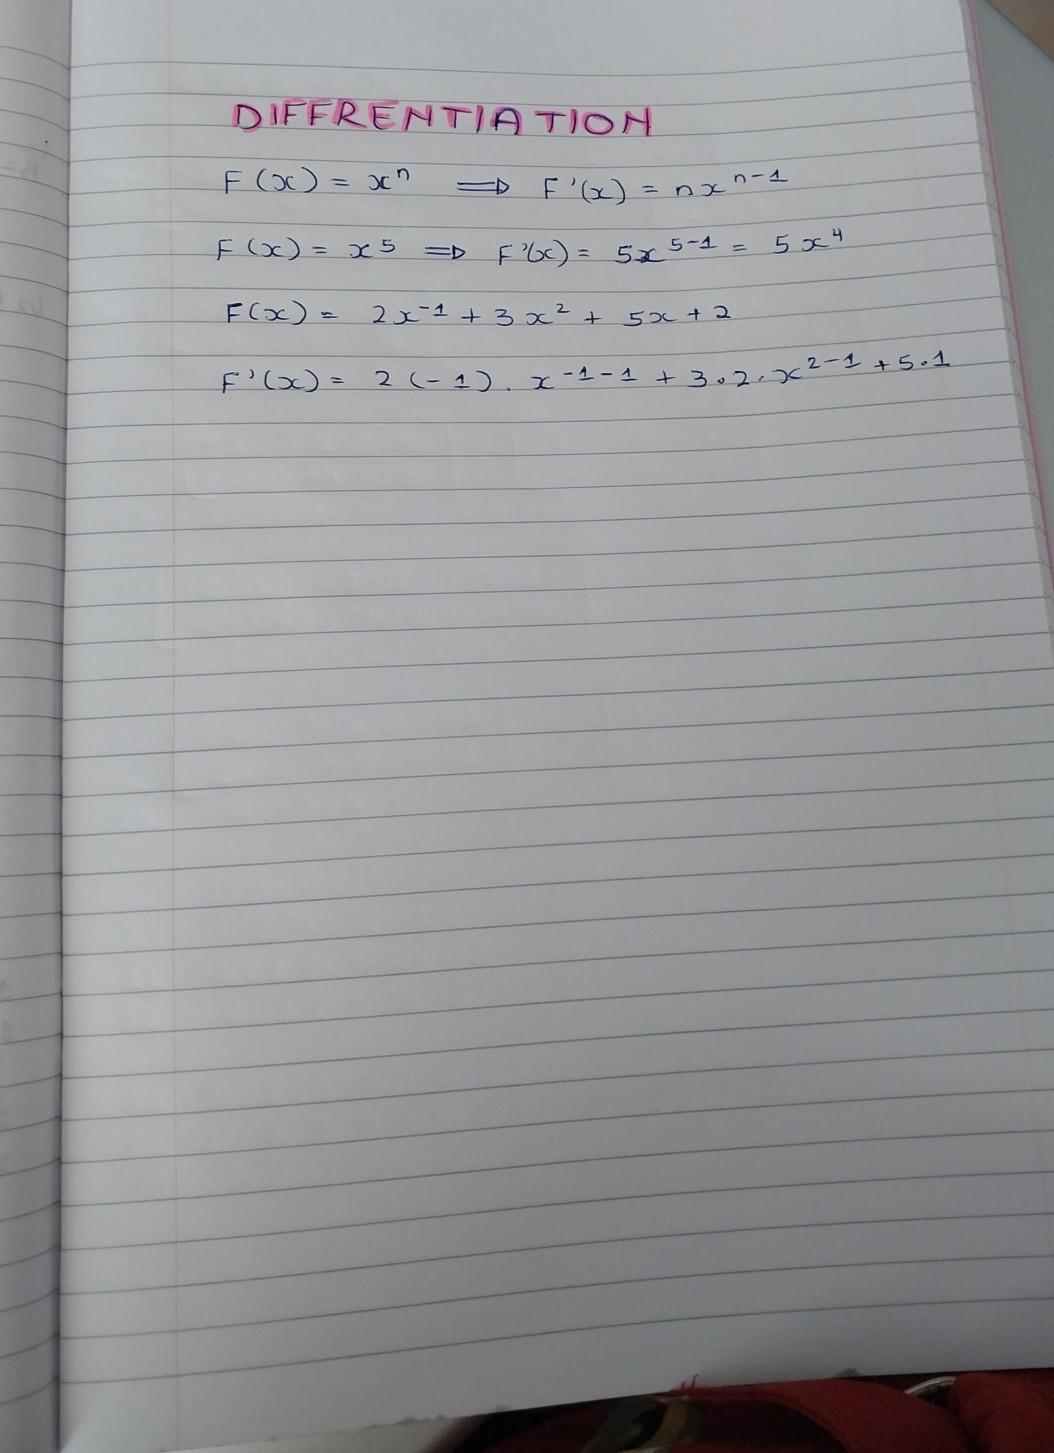 DIFFRENTIATION
F(x) = xⁿ ⟹ F'(x) = nxⁿ⁻¹
F(x) = x⁵ ⟹ F'(x) = 5x⁵⁻¹ = 5x⁴
F(x) = 2x⁻¹ + 3x² + 5x + 2
F'(x) = 2(-1). x⁻¹⁻¹ + 3.2.x²⁻¹ + 5.1